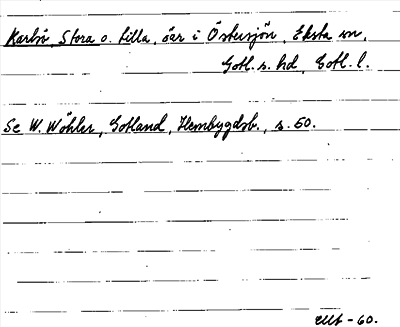 Karlsö, Stora o. Lilla, öar i Östersjön, Eksta sn,
Gotl. s. hd, Gotl. l.
Se W. Wöhler, Gotland, Hembygdsb., s. 50.
-60.